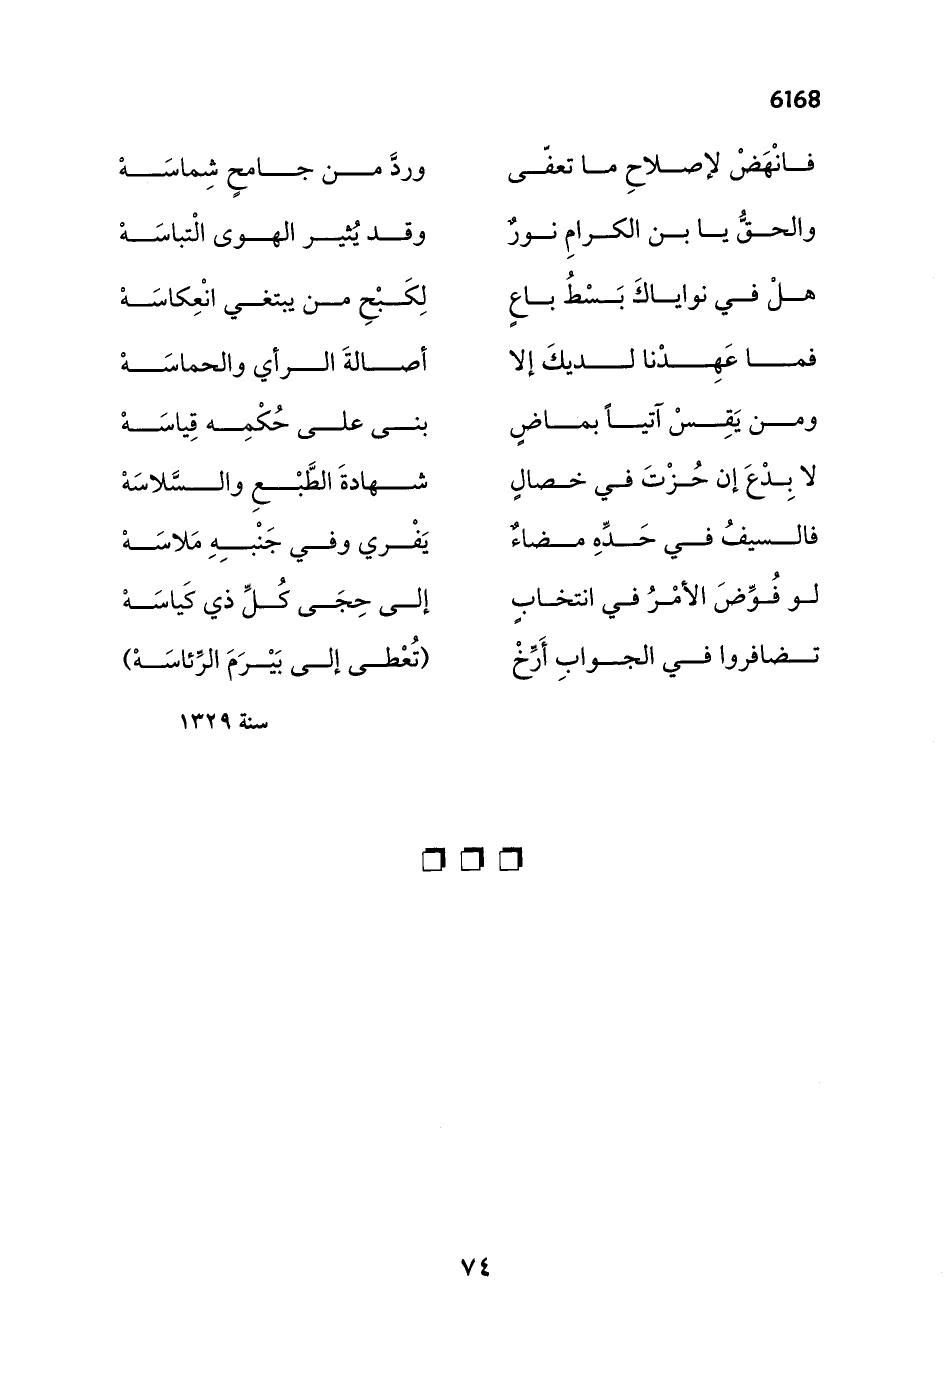 6168
فانْهَضْ لإصلاحِ ما تعفّى وردَّ من جامحٍ شِماسَهْ
والحقُّ يا بن الكرامِ نورٌ وقد يُثير الهوى الْتباسَهْ
هلْ في نواياكَ بَسْطُ باعٍ لِكَبْحِ من يبتغي انْعِكاسَهْ
فما عَهِدْنا لديكَ إلا أصالةَ الرأي والحماسَهْ
ومن يَقِسْ آتياً بماضٍ بنى على حُكْمِه قِياسَهْ
لا بِدْعَ إن حُزْتَ في خصالٍ شهادةَ الطَّبْعِ والسَّلاسَهْ
فالسيفُ في حَدِّهِ مضاءٌ يَفْري وفي جَنْبِهِ مَلاسَهْ
لو فُوِّضَ الأمْرُ في انتخابٍ إلى حِجَى كُلِّ ذي كَياسَهْ
تضافروا في الجوابِ أَرِّخْ (تُعْطى إلى بَيْرَمَ الرِّئاسَهْ)
سنة ١٣٢٩
٧٤